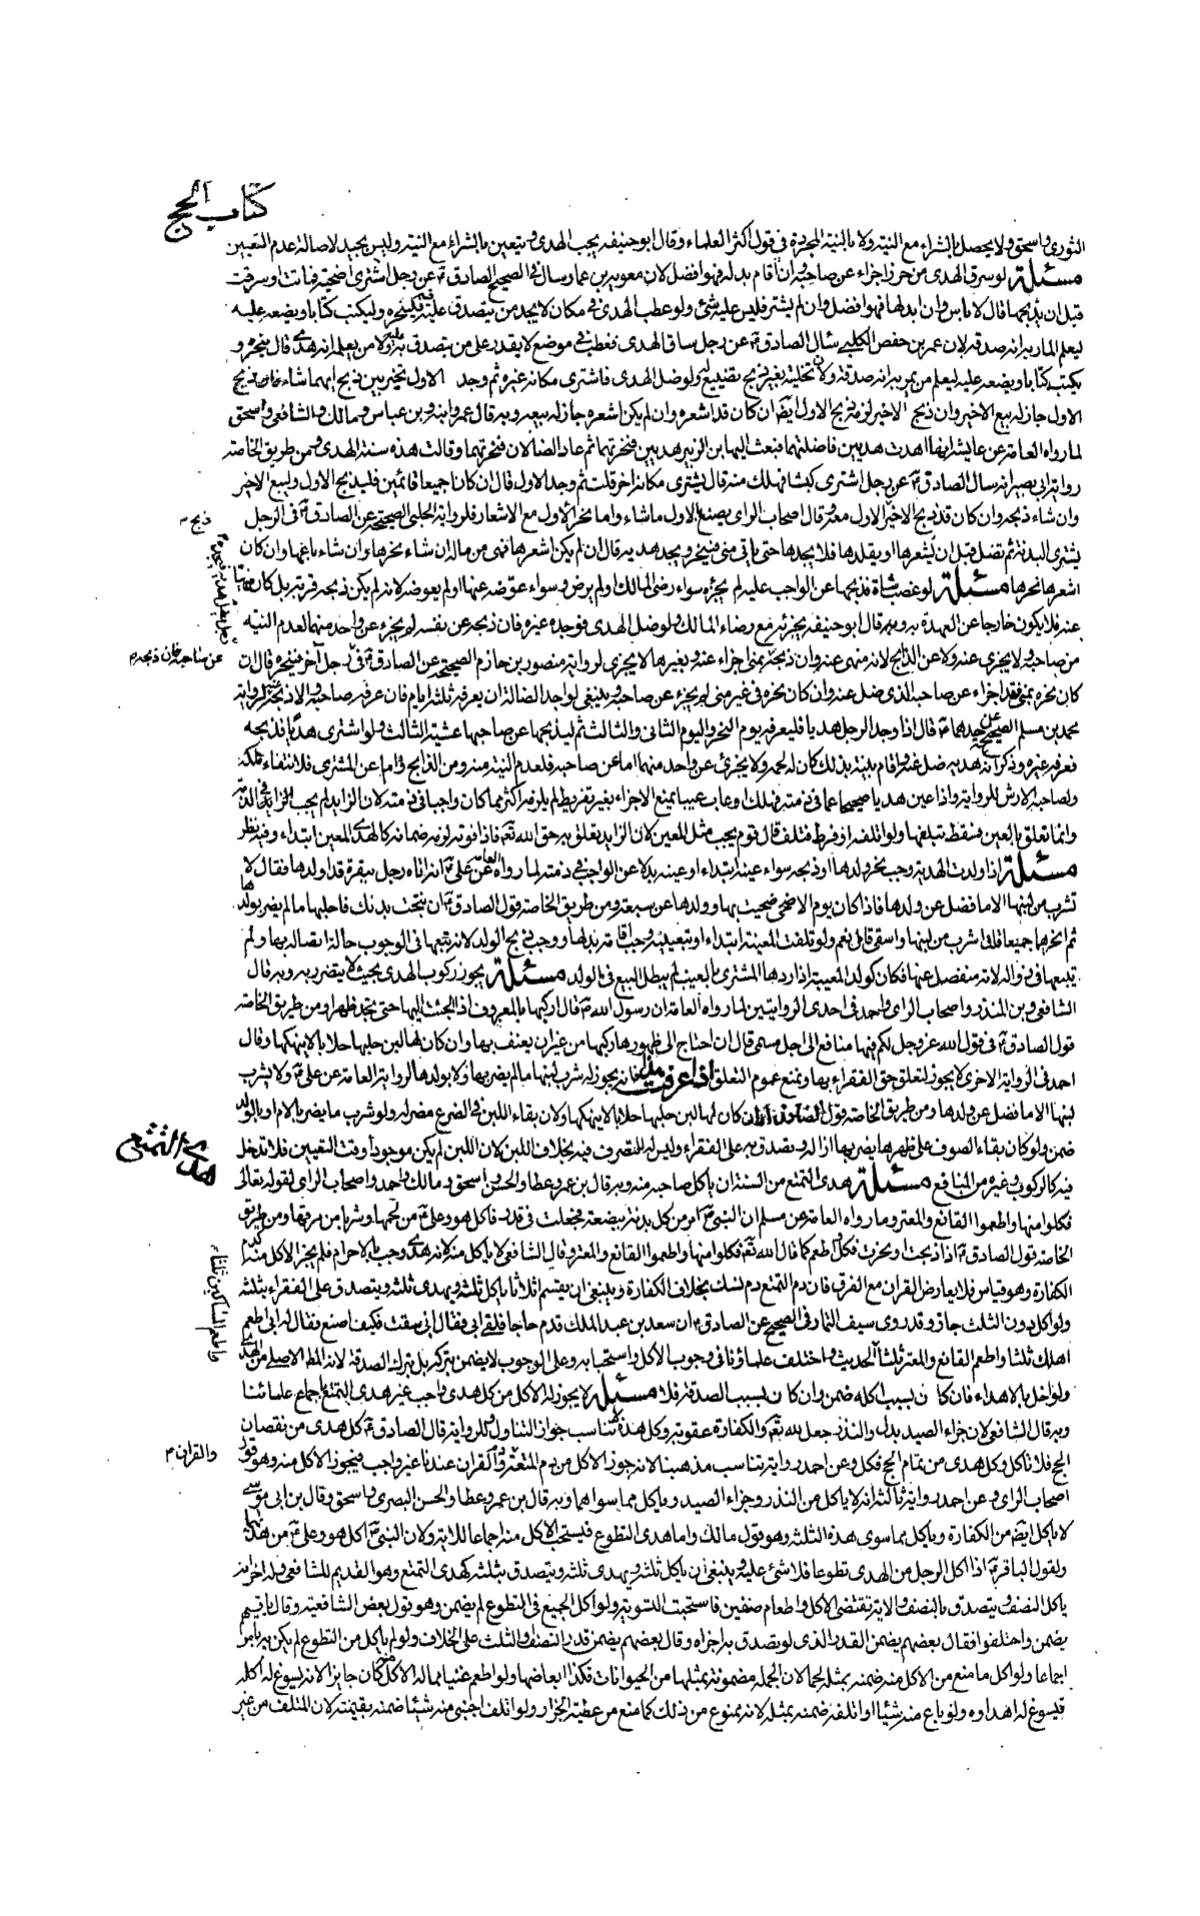 كتاب الحج
الثوري واسحق ولا يحصل بالشراء مع النية ولا بالنية المجردة في قول اكثر العلماء وقال ابو حنيفه يجب الهدى ويتعين بالشراء مع النية وليس بجيد لاصالة عدم التعيين
مسئلة لو سرق الهدى من حرز اجزاء عن صاحبه وان اقام بدله فهو افضل لان معوية بن عمار سال في الصحيح الصادق ع عن رجل اشترى اضحية فماتت او سرقت
قبل ان يذبحها قال لا باس وان ابدلها فهو افضل وان لم يشتر فليس عليه شئ ولو عطب الهدى في مكان لا يجد من يتصدق عليه فيه فلينحره وليكتب كتابا ويضعه عليه
ليعلم المار به انه صدقة لان عمر بن حفص الكلبي سئال الصادق ع عن رجل ساق الهدى فعطب في موضع لا يقدر على من يتصدق به عليه ولا من يعلمه انه هدى قال ينحره و
يكتب كتابا ويضعه عليه ليعلم من يمر به انه صدقة ولان تخليته بغير ذبح تضييع ولو ضل الهدى فاشترى مكانه غيره ثم وجد الاول تخير بين ذبح ايهما شاء فان ذبح
الاول جاز له بيع الاخير وان ذبح الاخير لزمه ذبح الاول ايضا ان كان قد اشعره وان لم يكن اشعره جاز له بيعه وبه قال عمر وابنه وبن عباس ومالك والشافعي واسحق
لما رواه العامة عن عايشة انها اهدت هديين فاضلتهما فبعث اليها ابن الزبير هديين فنحرتهما ثم عاد الضالان فنحرتهما وقالت هذه سنة الهدى ومن طريق الخاصة
رواية ابي بصير انه سال الصادق ع عن رجل اشترى كبشا فهلك منه قال يشترى مكانه اخر قلت ثم وجد الاول قال ان كانا جميعا قائمين فليذبح الاول وليبع الاخير
وان شاء ذبحه وان كان قد ذبح الاخير الاول معه وقال اصحاب الراى يصنع بالاول ما شاء واما نحر الاول مع الاشعار فلرواية الحلبي الصحيحة عن الصادق ع في الرجل
ذبح م
يشترى البدنة ثم تضل قبل ان يشعرها او يقلدها فلا يجدها حتى ياتي منى فينحر ويجد هديه قال ان لم يكن اشعرها فهى من ماله ان شاء نحرها وان شاء باعها وان كان
اشعرها نحرها مسئلة لو غصب شاة فذبحها عن الواجب عليه لم يجزه سواء رضى المالك او لم يرض وسواء عوضه عنها او لم يعوضه لانه لم يكن ذبحه قربة بل كان منهيا
عنه فلا يكون خارجا عن العهدة به وبه قال ابو حنيفه يجزيه مع رضاء المالك ولو ضل الهدى فوجده غيره فان ذبحه عن نفسه لم يجزء عن واحد منهما لعدم النية
من صاحبه ولا يجزى عنه ولا عن الذابح لانه منهى عنه وان ذبحه بمنى اجزاء عنه وبغيرها لا يجزى لرواية منصور بن حازم الصحيحة عن الصادق ع في رجل آخر فينحره قال ان
عن صاحبه فان ذبحه م
كان نحره بمنى فقد اجزاء عن صاحبه الذى ضل عنه وان كان نحره في غير منى لم يجزء عن صاحبه وينبغى لواجد الضالة ان يعرفه ثلثة ايام فان عرفه صاحبه والا ذبحه عنه لرواية
محمد بن مسلم الصحيحة عن احدهما ع قال اذا وجد الرجل هديا فليعرفه يوم النحر واليوم الثاني والثالث ثم ليذبحها عن صاحبها عشية الثالث ولو اشترى هديا فذبحه
فعرفه غيره وذكر انه هديه ضل عنه واقام بينة بذلك كان له لحمه ولا يجزئ عن واحد منهما اما عن صاحبه فلعدم النية منه ومن الذابح واما عن المشترى فلانتفاء ملكه
ولصاحبه الارش للرواية واذا عين هديا صحيحا عما في ذمته فهلك او عاب عيبا يمنع الاجزاء بغير تفريط لم يلزمه اكثر مما كان واجبا في ذمته لان الزايد لم يجب في الذمة
وانما تعلق بالعين فسقط بتلفها ولو اتلفه او فرط فتلف قال قوم يجب مثل المعين لان الزايد تعلق به حق الله تعالى فاذا فوته لزمه ضمانه كالهدى المعين ابتداء وفيه نظر
مسئلة اذا ولدت الهدية وجب نحر ولدها او ذبحه سواء عينه ابتداء او عينه بدلا عن الواجب في ذمته لما رواه العامة عن علي ع انه اتاه رجل ببقرة قد اولدها فقال لا
تشرب من لبنها الا ما فضل عن ولدها فاذا كان يوم الاضحى ضحيت بها وولدها عن سبعة ومن طريق الخاصة قول الصادق ع ان نتجت بدنتك فاحلبها ما لم يضر بولدها
ثم انحرهما جميعا قلت اشرب من لبنها واسقى قال نعم ولو تلفت المعينة ابتداء او بتعيينه وجب اقامة بدلها ووجب ذبح الولد لانه تبعها في الوجوب حالة اتصاله بها ولم
يتبعها في زواله لانه منفصل عنها فكان كولد المعيبة اذا ردها المشترى بالعيب لم يبطل البيع في الولد مسئلة يجوز ركوب الهدى بحيث لا يتضرر به وبه قال
الشافعي وبن المنذر واصحاب الراى واحمد في احدى الروايتين لما رواه العامة ان رسول الله ص قال اركبها بالمعروف اذا الجئت اليها حتى تجد ظهرا ومن طريق الخاصة
قول الصادق ع في قول الله عز وجل لكم فيها منافع الى اجل مسمى قال ان احتاج الى ظهورها ركبها من غير ان يعنف بها وان كان لها لبن حلبها حلابا لا ينهكها وقال
احمد في الرواية الاخرى لا يجوز لتعلق حق الفقراء بها ويمنع عموم التعلق اذا عرفت هذا فانه يجوز له شرب لبنها ما لم يضر بها ولا بولدها لرواية العامة عن علي ع ولا يشرب
لبنها الا ما فضل عن ولدها ومن طريق الخاصة قول الصادق ع وان كان لها لبن حلبها حلابا لا ينهكها ولان بقاء اللبن في الضرع مضر له ولو شرب ما يضر بالام او بالولد
ضمن ولو كان بقاء الصوف على ظهرها يضر بها ازاله وتصدق به على الفقراء وليس له التصرف فيه بخلاف اللبن لان اللبن لم يكن موجودا وقت التعيين فلا تدخل
هدى التمتع
فيه كالركوب وغيره من المنافع مسئلة هدى التمتع من السنة ان ياكل صاحبه منه وبه قال بن عمر وعطا والحسن واسحق ومالك واحمد واصحاب الراى لقوله تعالى
فكلوا منها واطعموا القانع والمعتر وما رواه العامة عن مسلم ان النبي ص امر من كل بدنة ببضعة فجعلت في قدر فاكل هو وعلي ع من لحمها وشربا من مرقها ومن طريق
الخاصه قول الصادق ع اذا ذبحت او نحرت فكل واطعم كما قال الله تعالى فكلوا منها واطعموا القانع والمعتر وقال الشافعي لا ياكل منه لانه هدى وجب بالاحرام فلم يجز الاكل منه كدم
الكفارة وهو قياس فلا يعارض القران مع الفرق فان دم التمتع دم نسك بخلاف الكفارة وينبغى ان يقسم اثلاثا ياكل ثلثه ويهدى ثلثه ويتصدق على الفقراء بثلثه
ولو اكل دون الثلث جاز وقد روى سيف التمار في الصحيح عن الصادق ع ان سعد بن عبد الملك قدم حاجا فلقى ابي فقال اني سقت فكيف اصنع فقال له ابي اطعم
واطعم المساكين ثلثاء
اهلك ثلثا واطعم القانع والمعتر ثلثا الحديث واختلف علماؤنا في وجوب الاكل واستحبابه وعلى الوجوب لا يضمن بتركه بل بترك الصدقة لانه المط الاصلي من الهدى
ولو اخل بالاهداء فان كان بسبب اكله ضمن وان كان بسبب الصدقة فلا مسئلة لا يجوز له الاكل من كل هدى واجب غير هدى التمتع باجماع علمائنا
وبه قال الشافعي لان جزاء الصيد بدل والنذر جعل لله تعالى والكفارة عقوبة وكل هذا لا يناسب جواز التناول وللرواية قال الصادق ع كل هدى من نقصان
الحج فلا تاكل وكل هدى من تمام الحج فكل وعن احمد رواية تناسب مذهبنا لانه جوز الاكل من دم المتعة والقران عندنا غير واجب فيجوز الاكل منه وهو قول
والقران م
اصحاب الراى وعن احمد رواية ثالثة انه لا ياكل من النذر وجزاء الصيد وياكل مما سواهما وبه قال بن عمر وعطا والحسن البصرى واسحق وقال بن ابي موسى
لا ياكل ايضا من الكفارة وياكل مما سوى هذه الثلثة وهو قول مالك واما هدى التطوع فيستحب الاكل منه اجماعا للاية ولان النبي ص اكل هو وعلي ع من هديهما
ولقول الباقر ع اذا اكل الرجل من الهدى تطوعا فلا شئ عليه وينبغى ان ياكل ثلثه ويهدى ثلثه ويتصدق بثلثه كهدى التمتع وهو القديم للشافعي وله اخر انه
ياكل النصف ويتصدق بالنصف والاية تقتضى الاكل واطعام صنفين فاستحبت التسوية ولو اكل الجميع في التطوع لم يضمن وهو قول بعض الشافعية وقال باقيهم
يضمن واختلفوا فقال بعضهم يضمن القدر الذى لو تصدق به اجزاه وقال بعضهم يضمن قدر النصف والثلث على الخلاف ولو لم ياكل من التطوع لم يكن به باس
اجماعا ولو اكل ما منع من الاكل منه ضمنه بمثله لحما لان الجمله مضمونة بمثلها من الحيوانات فكذا ابعاضها ولو اطعم غنيا مما له الاكل منه كان جايزا لانه يسوغ له اكله
فيسوغ له اهداوه ولو باع منه شيئا او اتلفه ضمنه بمثله لانه ممنوع من ذلك كما منع من عطية الجزار ولو اتلف اجنبى منه شيئا ضمنه بقيمته لان المتلف من غير